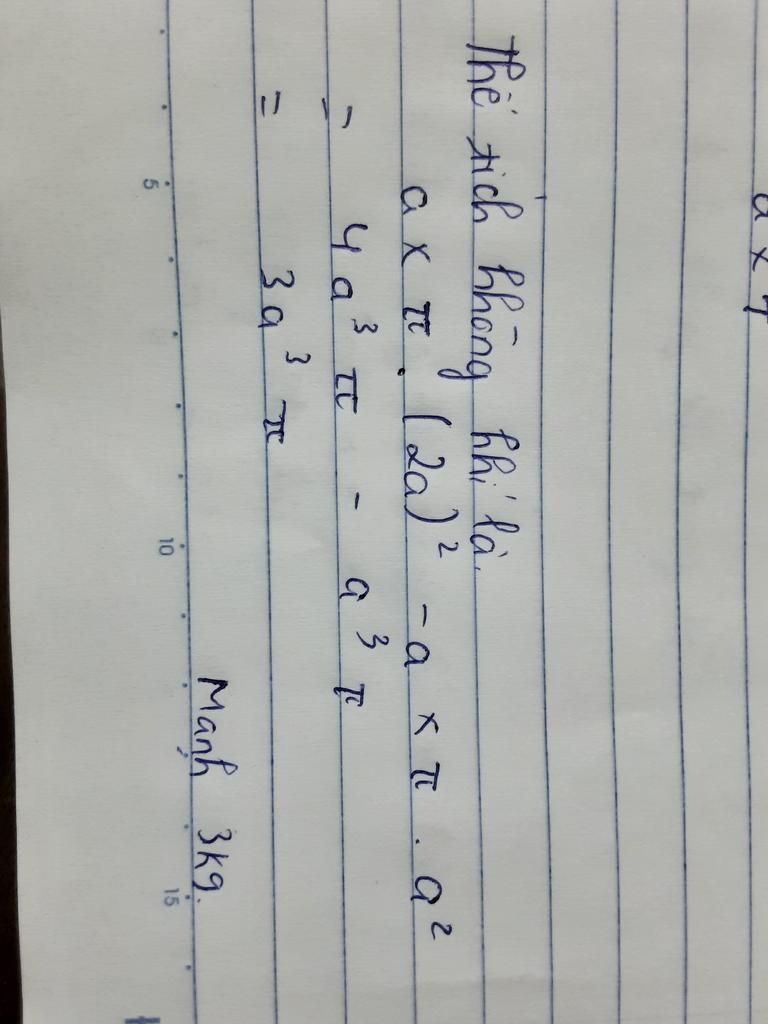 a x T
Thể tích không khí là.
a x π . (2a)² - a x π . a²
= 4a³ π - a³ π
= 3a³ π
Manh 3kg.
5
10
15